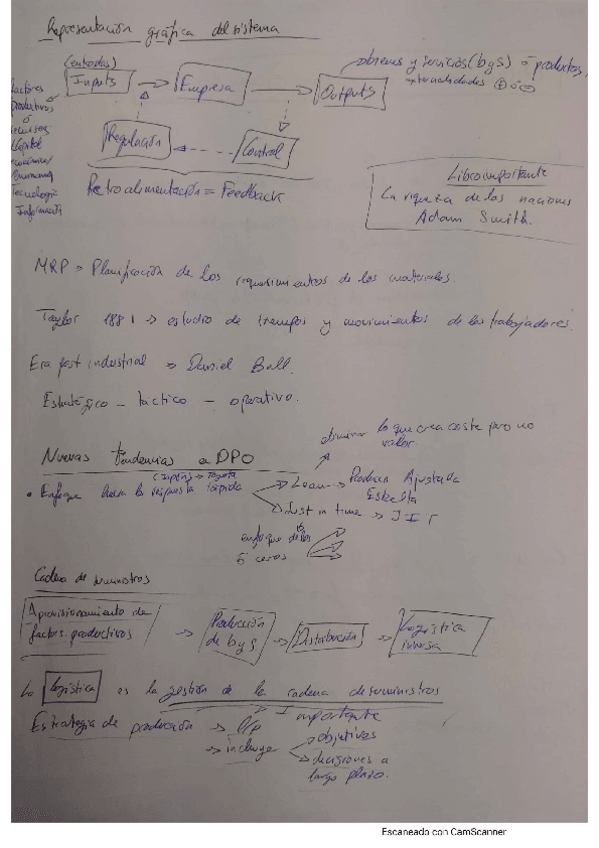 Representación gráfica del sistema
(entradas)
Inputs
Empresa
Outputs
obienes y servicios (b y s) ó productos,
externalidades + ó -
factores
productivos
ó
recursos
Capital
Tecnología
Regulación
Control
Retroalimentación = Feedback
Libro importante
La riqueza de las naciones
Adam Smith.
MRP = Planificación de los requerimientos de los materiales.
Taylor 1881 → estudio de tiempos y movimientos de los trabajadores.
Era post industrial → Daniel Bell.
Estratégico - táctico - operativo.
Nuevas tendencias a DPO
eliminar lo que crea coste pero no
valor.
(Japón) → Toyota
• Enfoque hacia la respuesta rápida
Lean → Producción Ajustada
Estrecha
Just in time → JIT
enfoque de los
5 ceros
Cadena de suministros
Aprovisionamiento de
factores productivos
→ Producción
de b y s
→ Distribución
→ Logística
inversa
La logística es la gestión de la cadena de suministros
importante
Estrategia de producción → L/P
→ incluye
objetivos
decisiones a
largo plazo.
Escaneado con CamScanner